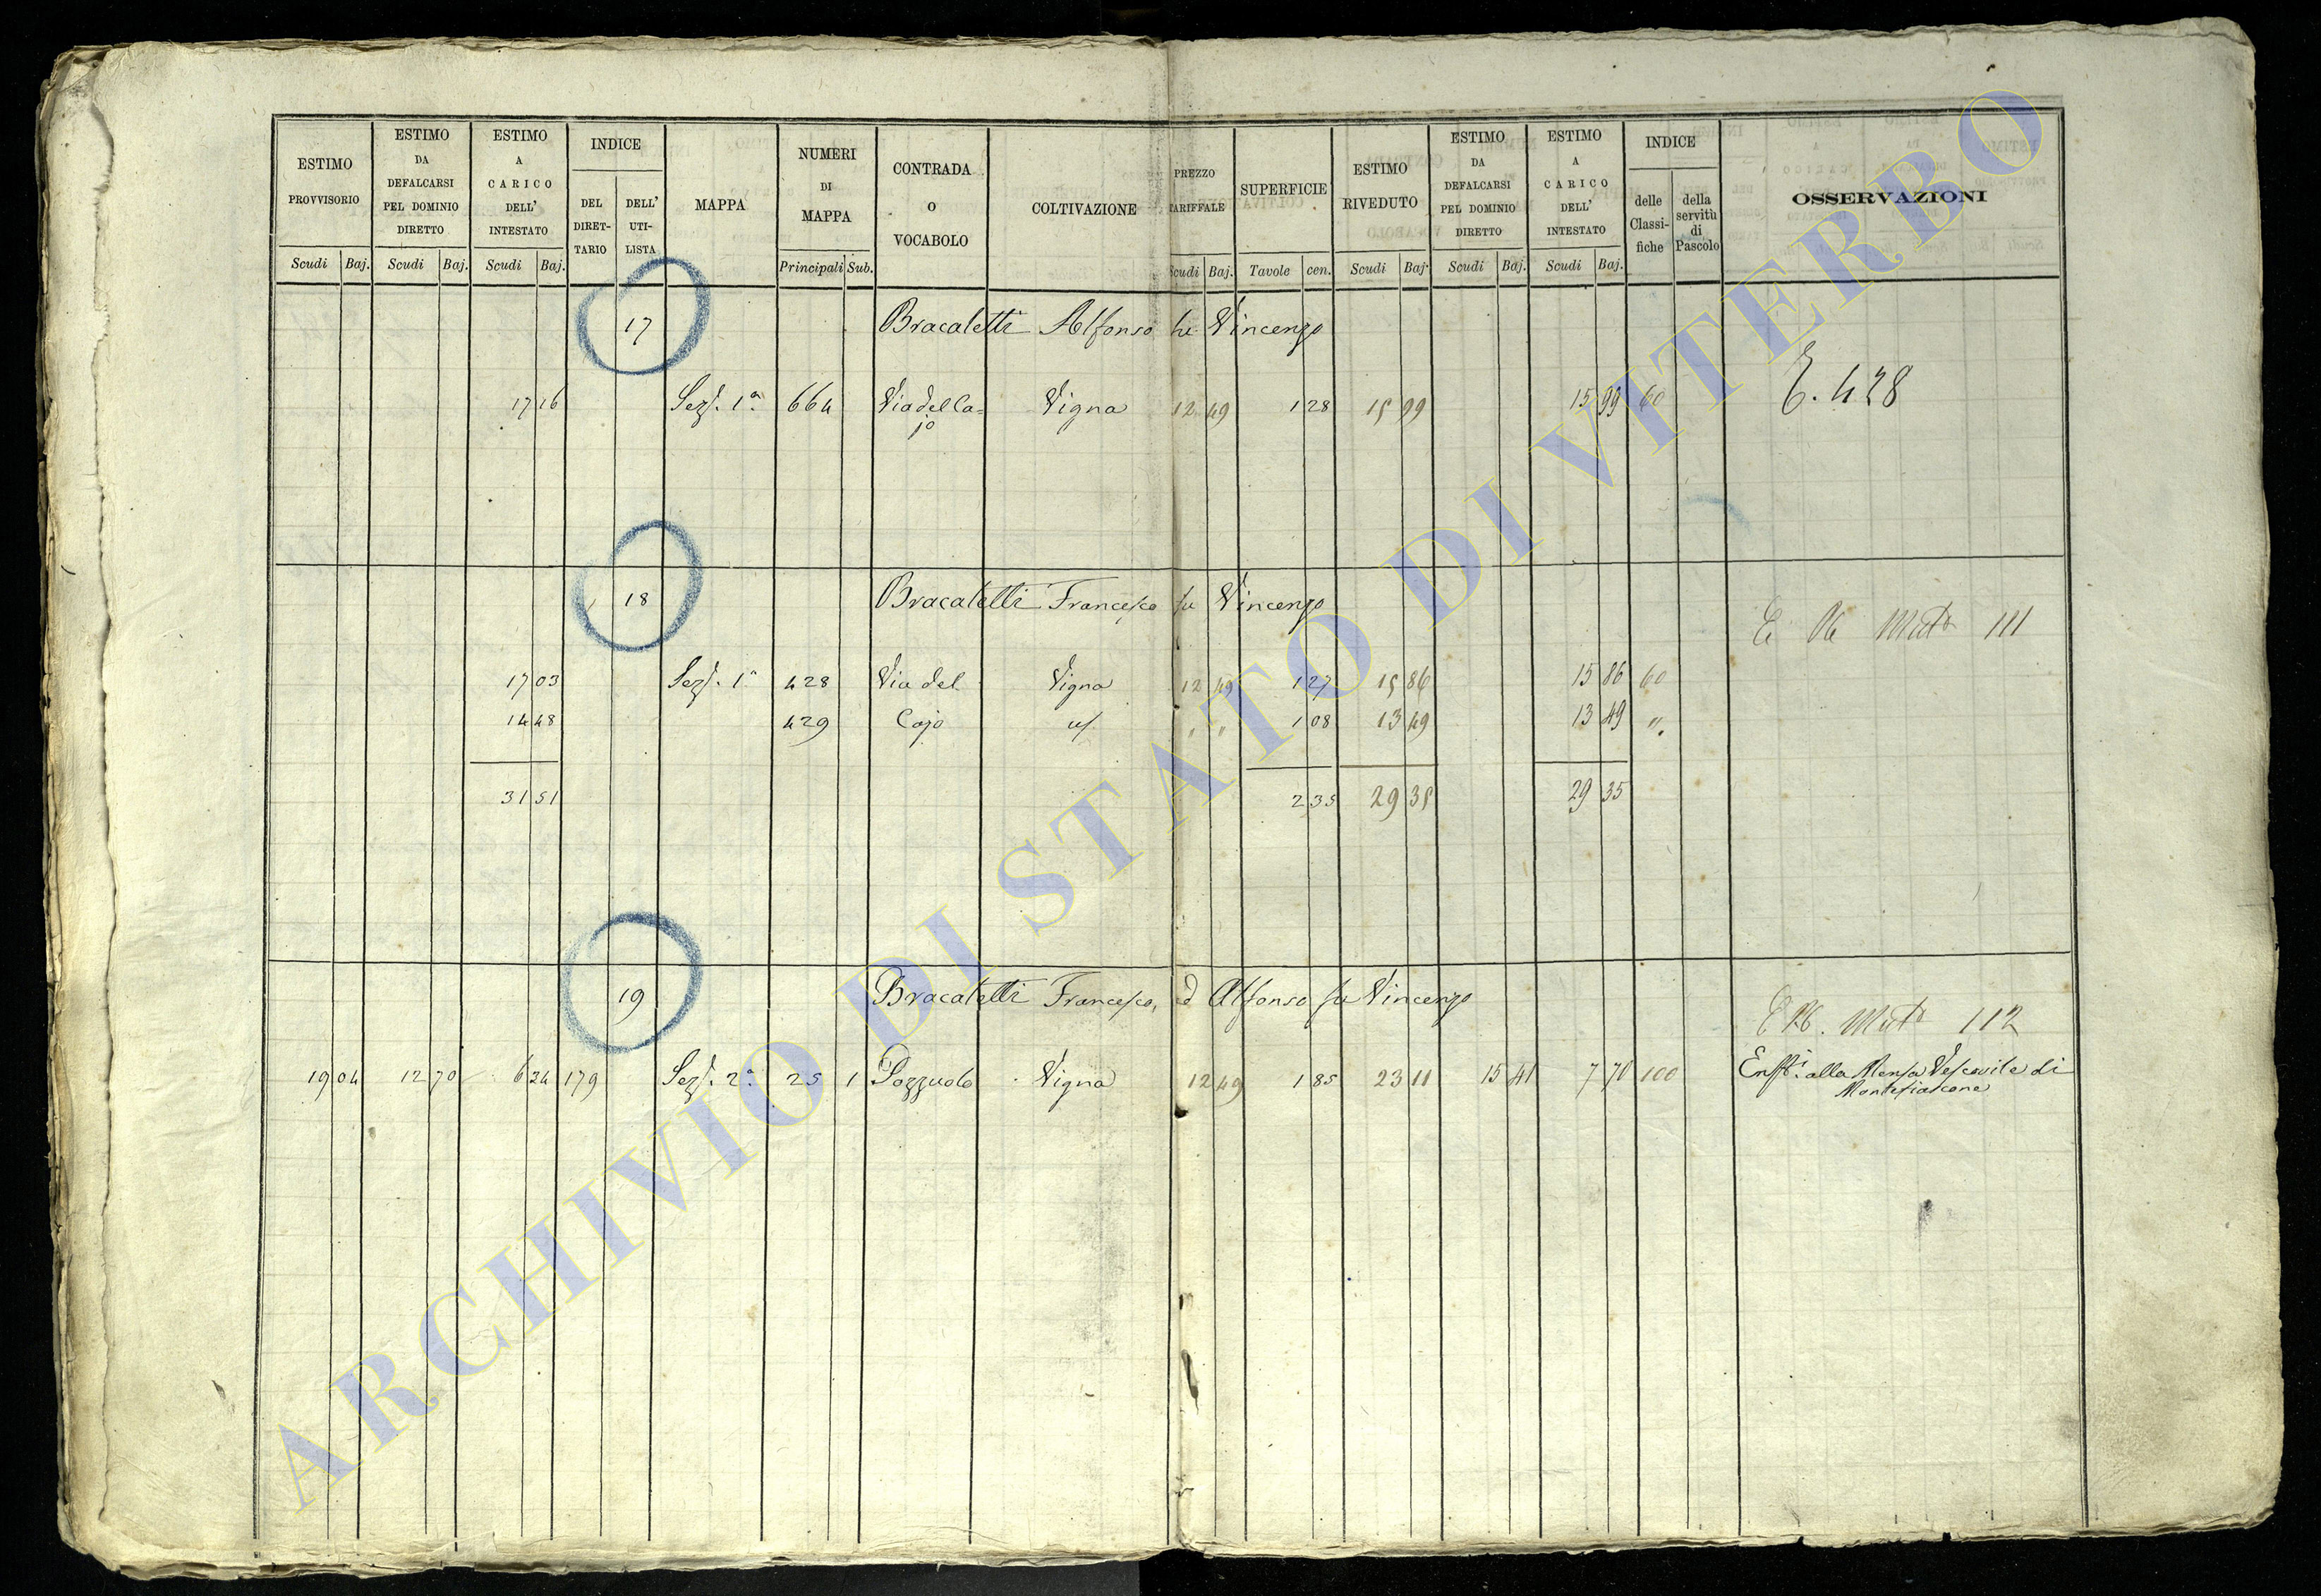 ESTIMO PROVVISORIO Scudi Baj.
ESTIMO DA DEFALCARSI PEL DOMINIO DIRETTO Scudi Baj.
ESTIMO A CARICO DELL' INTESTATO Scudi Baj.
INDICE DEL DIRET-TARIO DELL' UTI-LISTA
MAPPA
NUMERI DI MAPPA Principali Sub.
CONTRADA O VOCABOLO
COLTIVAZIONE
PREZZO TARIFFALE Scudi Baj.
SUPERFICIE Tavole cen.
ESTIMO RIVEDUTO Scudi Baj.
ESTIMO DA DEFALCARSI PEL DOMINIO DIRETTO Scudi Baj.
ESTIMO A CARICO DELL' INTESTATO Scudi Baj.
INDICE delle Classi-fiche della servitù di Pascolo
OSSERVAZIONI
17 Bracaletti Alfonso fu Vincenzo
17 16 Sezf. 1a 664 Via del Ca= Vigna 12 49 1 28 15 99 15 99 60 E. 428
jo
18 Bracaletti Francesco fu Vincenzo
Mut. 111
17 03 Sezf. 1a 428 Via del Vigna 12 49 1 27 15 86 15 86 60
14 48 429 Cajo " " 1 08 13 49 13 49 "
31 51 2 35 29 35 29 35
19 Bracaletti Francesco, ed Alfonso fu Vincenzo
Mut. 112
19 04 12 70 6 34 179 Sezf. 2a 25 1 Pozzuolo Vigna 12 49 1 85 23 11 15 41 7 70 100 Enfti. alla Mensa Vescovile di
Montefiascone
ARCHIVIO DI STATO DI VITERBO